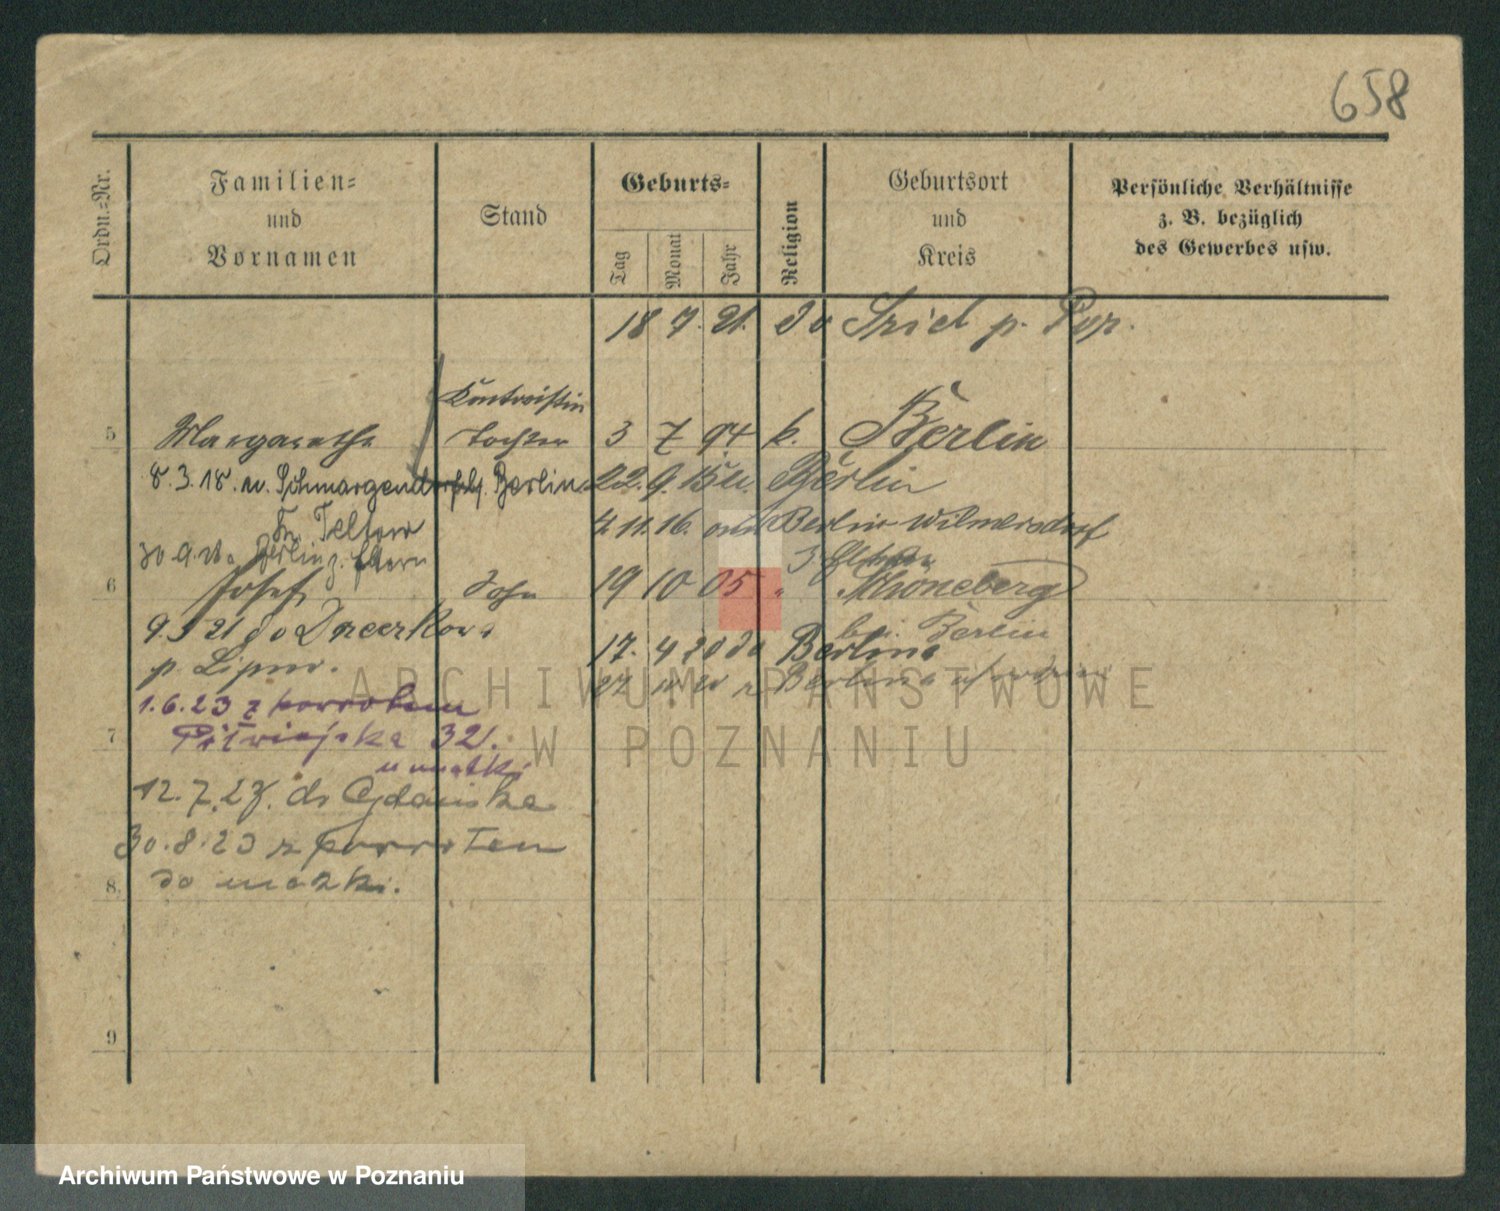 658
Ordn.-Nr.
Familien-
und
Vornamen
Stand
Geburts-
Tag
Monat
Jahr
Religion
Geburtsort
und
Kreis
Persönliche Verhältnisse
z. B. bezüglich
des Gewerbes usw.
18 7. 21. do
Kontoristin
5 Margarethe Tochter 3 7 94 k. Berlin
8.3.18. n. Schmargendorf Berlin 22. 9. Berlin
Kr. Teltow 4. 11. 16. Berlin Wilmersdorf
30.9. Berlin z. Eltern
6 Josef Sohn 19 10 05 " Schöneberg
bei Berlin
9 5 21 do
p. Lipno. 17. 4 20 do Berlina
1.6.23 z powrotem
7 32.
u matki
12.7.23. do Gdańska
30.8.23 z powrotem
8. do matki.
9
ARCHIWUM PAŃSTWOWE
W POZNANIU
Archiwum Państwowe w Poznaniu